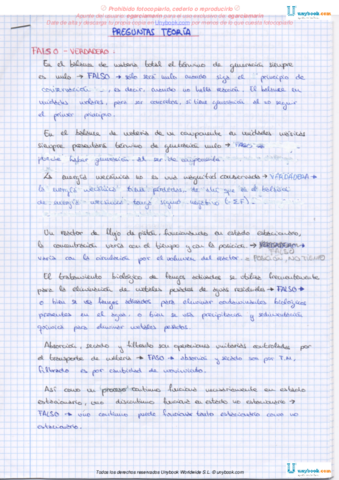 Prohibido fotocopiarlo, cederlo o reproducirlo
unybook.com
PREGUNTAS TEORÍA
FALSO - VERDADERO:
En el balance de materia total el término de generación siempre
es nulo → FALSO → sólo será nulo cuando siga el principio de
conservación, es decir, cuando no halla reacción. El balance en
unidades molares, para ser correctos, si tiene generación al no seguir
el primer principio.
En el balance de materia de un componente en unidades másicas
siempre presentará término de generación nulo → FALSO →
puede haber generación al ser de componente.
La energía mecánica no es una magnitud conservada → VERDADERA →
la energía mecánica tiene pérdidas, de ahí que en el balance
de energía mecánica tenga signo negativo (-ΣF).
Un reactor de flujo de pistón, funcionando en estado estacionario,
la concentración varía con el tiempo y con la posición →
FALSO
varía con la variación por el volumen del reactor → POSICIÓN, NO TIEMPO
El tratamiento biológico de fangos activados se utiliza frecuentemente
para la eliminación de metales pesados de aguas residuales → FALSO →
o bien si es fangos activados para eliminar contaminantes biológicos
presentes en el agua, o bien si es precipitación y sedimentación
química para eliminar metales pesados.
Absorción, secado y filtrado son operaciones unitarias controladas por
el transporte de materia → FALSO → absorción y secado son por T.M.,
filtrado es por cantidad de movimiento.
Así como un proceso continuo funciona necesariamente en estado
estacionario, uno discontinuo funciona en estado no estacionario →
FALSO → uno continuo puede funcionar tanto estacionario como no
estacionario.
Todos los derechos reservados Unybook Worldwide S.L. © unybook.com
unybook.com